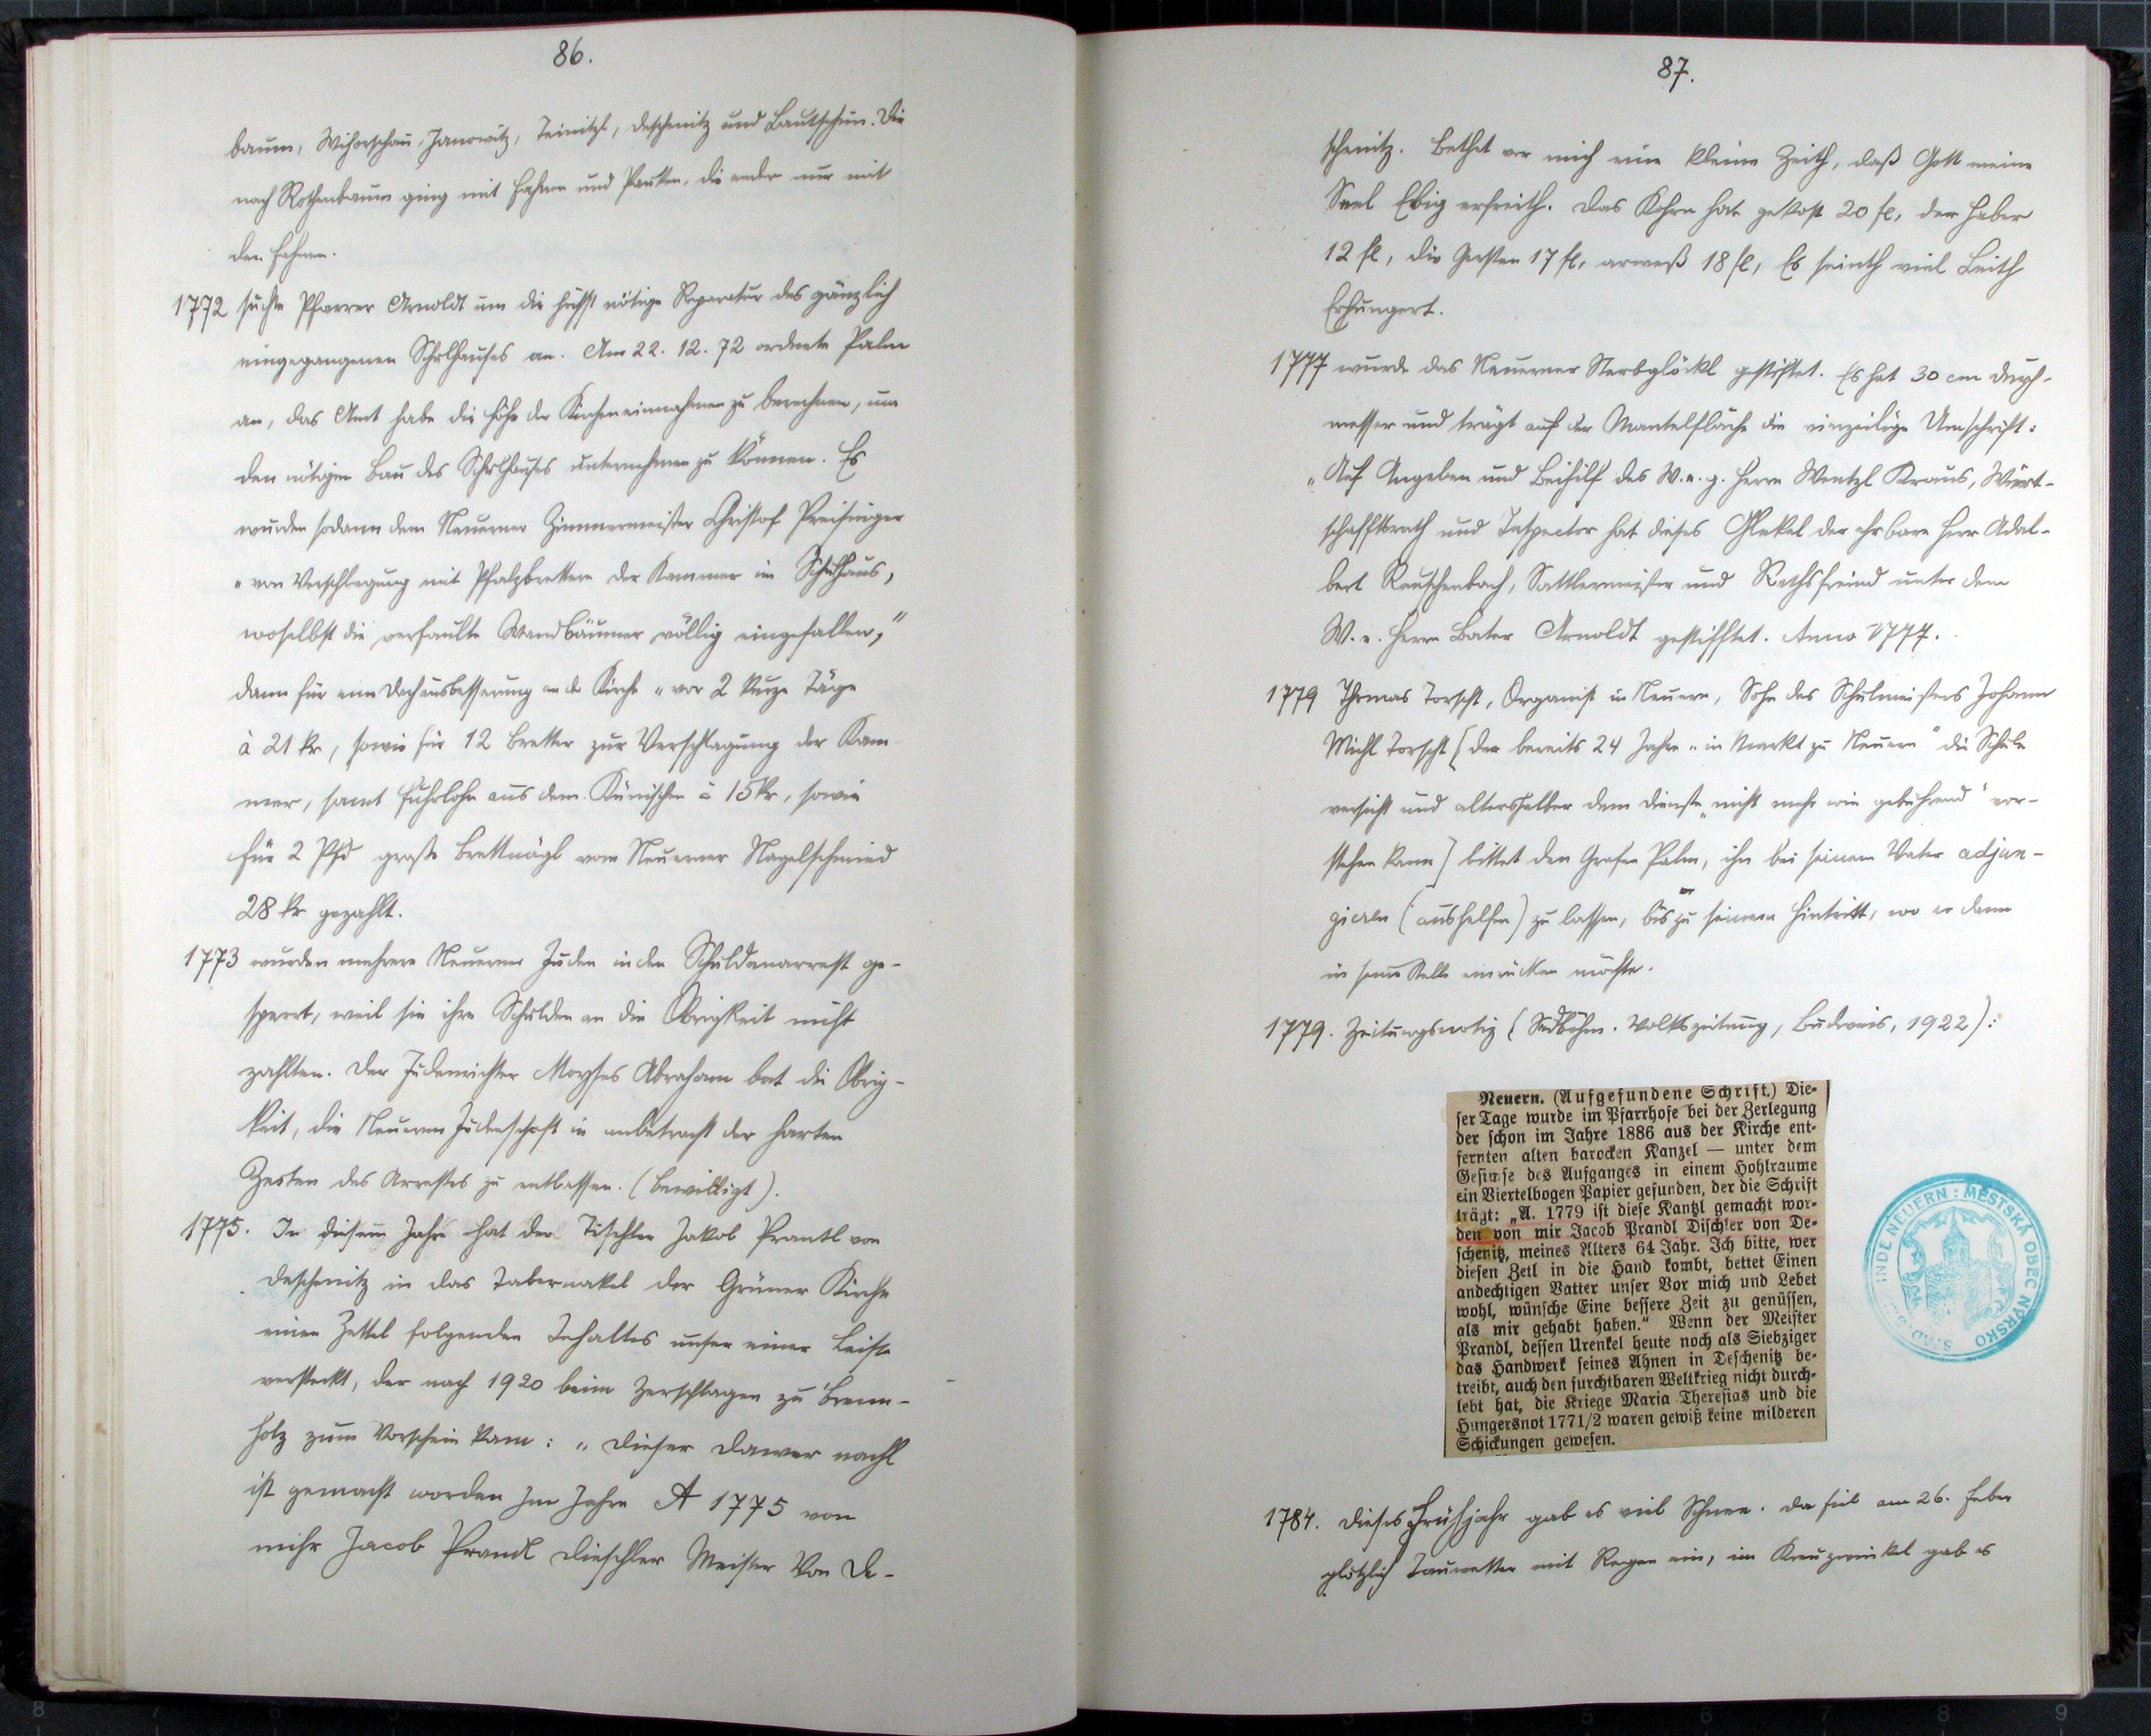 86.
baum, Wihorschau, Janowitz, Teinitzl, Deschenitz und Bautschin. Die
nach Rothenbaum ging mit Fahnen und Pauken, die andern nur mit
den Fahnen.
1772 suchte Pfarrer Arnoldt um die höchst nötige Reparatur des gänzlich
eingegangenen Schulhauses an. Am 22. 12. 72 ordnete Palm
an, das Amt habe die Höhe der Kircheneinnahmen zu berechnen, um
den nötigen Bau des Schulhauses unternehmen zu können. Es
wurden sodann dem Neuerner Zimmermeister Christof Preisinger
„von Verschlagung mit Pfalzbrettern der Kammer im Schulhaus,
woselbst die verfaulte Wandbäumer völlig eingefallen,"
dann für eine Dachausbesserung an der Kirche „vor 2 kurze Täge
à 21 kr, sowie für 12 Bretter zur Verschlagung der Kam-
mer, samt Fuhrlohn aus dem Künischen à 15 kr, sowie
für 2 Pfd große Brettnägl vom Neuerner Nagelschmied
28 kr gezahlt.
1773 wurden mehrere Neuerner Juden in den Schuldenarrest ge-
sperrt, weil sie ihre Schulden an die Obrigkeit nicht
zahlten. Der Judenrichter Moyses Abraham bat die Obrig-
keit, die Neuerner Judenschaft in anbetracht der harten
Zeiten des Arrestes zu entlassen. (bewilligt).
1775. In diesem Jahre hat der Tischler Jakob Prantl von
Deschenitz in das Tabernakel der Grüner Kirche
einen Zettel folgenden Inhaltes unter einer Leiste
versteckt, der nach 1920 beim Zerschlagen zu Brenn-
holz zum Vorschein kam: „Dieser Dawer nackl
ist gemacht worden Im Jahre A 1775 von
mihr Jacob Prandl Dieschler Meister Von De-
87.
schenitz. Bethet vor mich eine kleine Zeith, daß Gott meine
Seel Ebig erfreith. Das Kohrn hat gekost 20 fl, der Haber
12 fl, die Gersten 17 fl, arweß 18 fl, Es seinth viel Leith
Erhungert.
1777 wurde das Neuerner Sterbglöckl gestiftet. Es hat 30 cm Durch-
messer und trägt auf der Mantelfläche die einzeilige Umschrift:
„Auf Angeben und Beihilf des W. e. g. Herrn Wentzl Kraus, Würt-
schafftsrath und Inspector hat dieses Glekel der ehrbare Herr Adal-
bert Rauschenbach, Sattlermeister und Rathsfreind unter dem
W. e. Herrn Bater Arnoldt gestifftet. Anno 1777.
1779 Thomas Torscht, Organist in Neuern, Sohn des Schulmeisters Johann
Michl Torscht [der bereits 24 Jahre „in Markt zu Neuern" die Schule
versieht und altershalber dem Dienste „nicht mehr wie gebührend" vor-
stehen kann] bittet den Grafen Palm, ihn bei seinem Vater adjun-
gieren (aushelfen) zu lassen, bis zu seinem Hintritt, wo er dann
in seine Stelle einrücken möchte.
1779. Zeitungsnotiz (Südböhm. Volkszeitung, Budweis, 1922):
Neuern. (Aufgefundene Schrift.) Die-
ser Tage wurde im Pfarrhofe bei der Zerlegung
der schon im Jahre 1886 aus der Kirche ent-
fernten alten barocken Kanzel — unter dem
Gesimse des Aufganges in einem Hohlraume
ein Viertelbogen Papier gefunden, der die Schrift
trägt: „A. 1779 ist diese Kantzl gemacht wor-
den von mir Jacob Prandl Dischler von De-
schenitz, meines Alters 64 Jahr. Ich bitte, wer
diesen Zetl in die Hand kombt, bettet Einen
andechtigen Vatter unser Vor mich und Lebet
wohl, wünsche Eine bessere Zeit zu genüssen,
als mir gehabt haben." Wenn der Meister
Prandl, dessen Urenkel heute noch als Siebziger
das Handwerk seines Ahnen in Deschenitz be-
treibt, auch den furchtbaren Weltkrieg nicht durch-
lebt hat, die Kriege Maria Theresias und die
Hungersnot 1771/2 waren gewiß keine milderen
Schickungen gewesen.
INDE NEUERN : MĚSTSKÁ OBEC NÝRSKO
1784. Dieses Frühjahr gab es viel Schnee. Da fiel am 26. Feber
plötzlich Tauwetter mit Regen ein, im Kreuzwinkel gab es